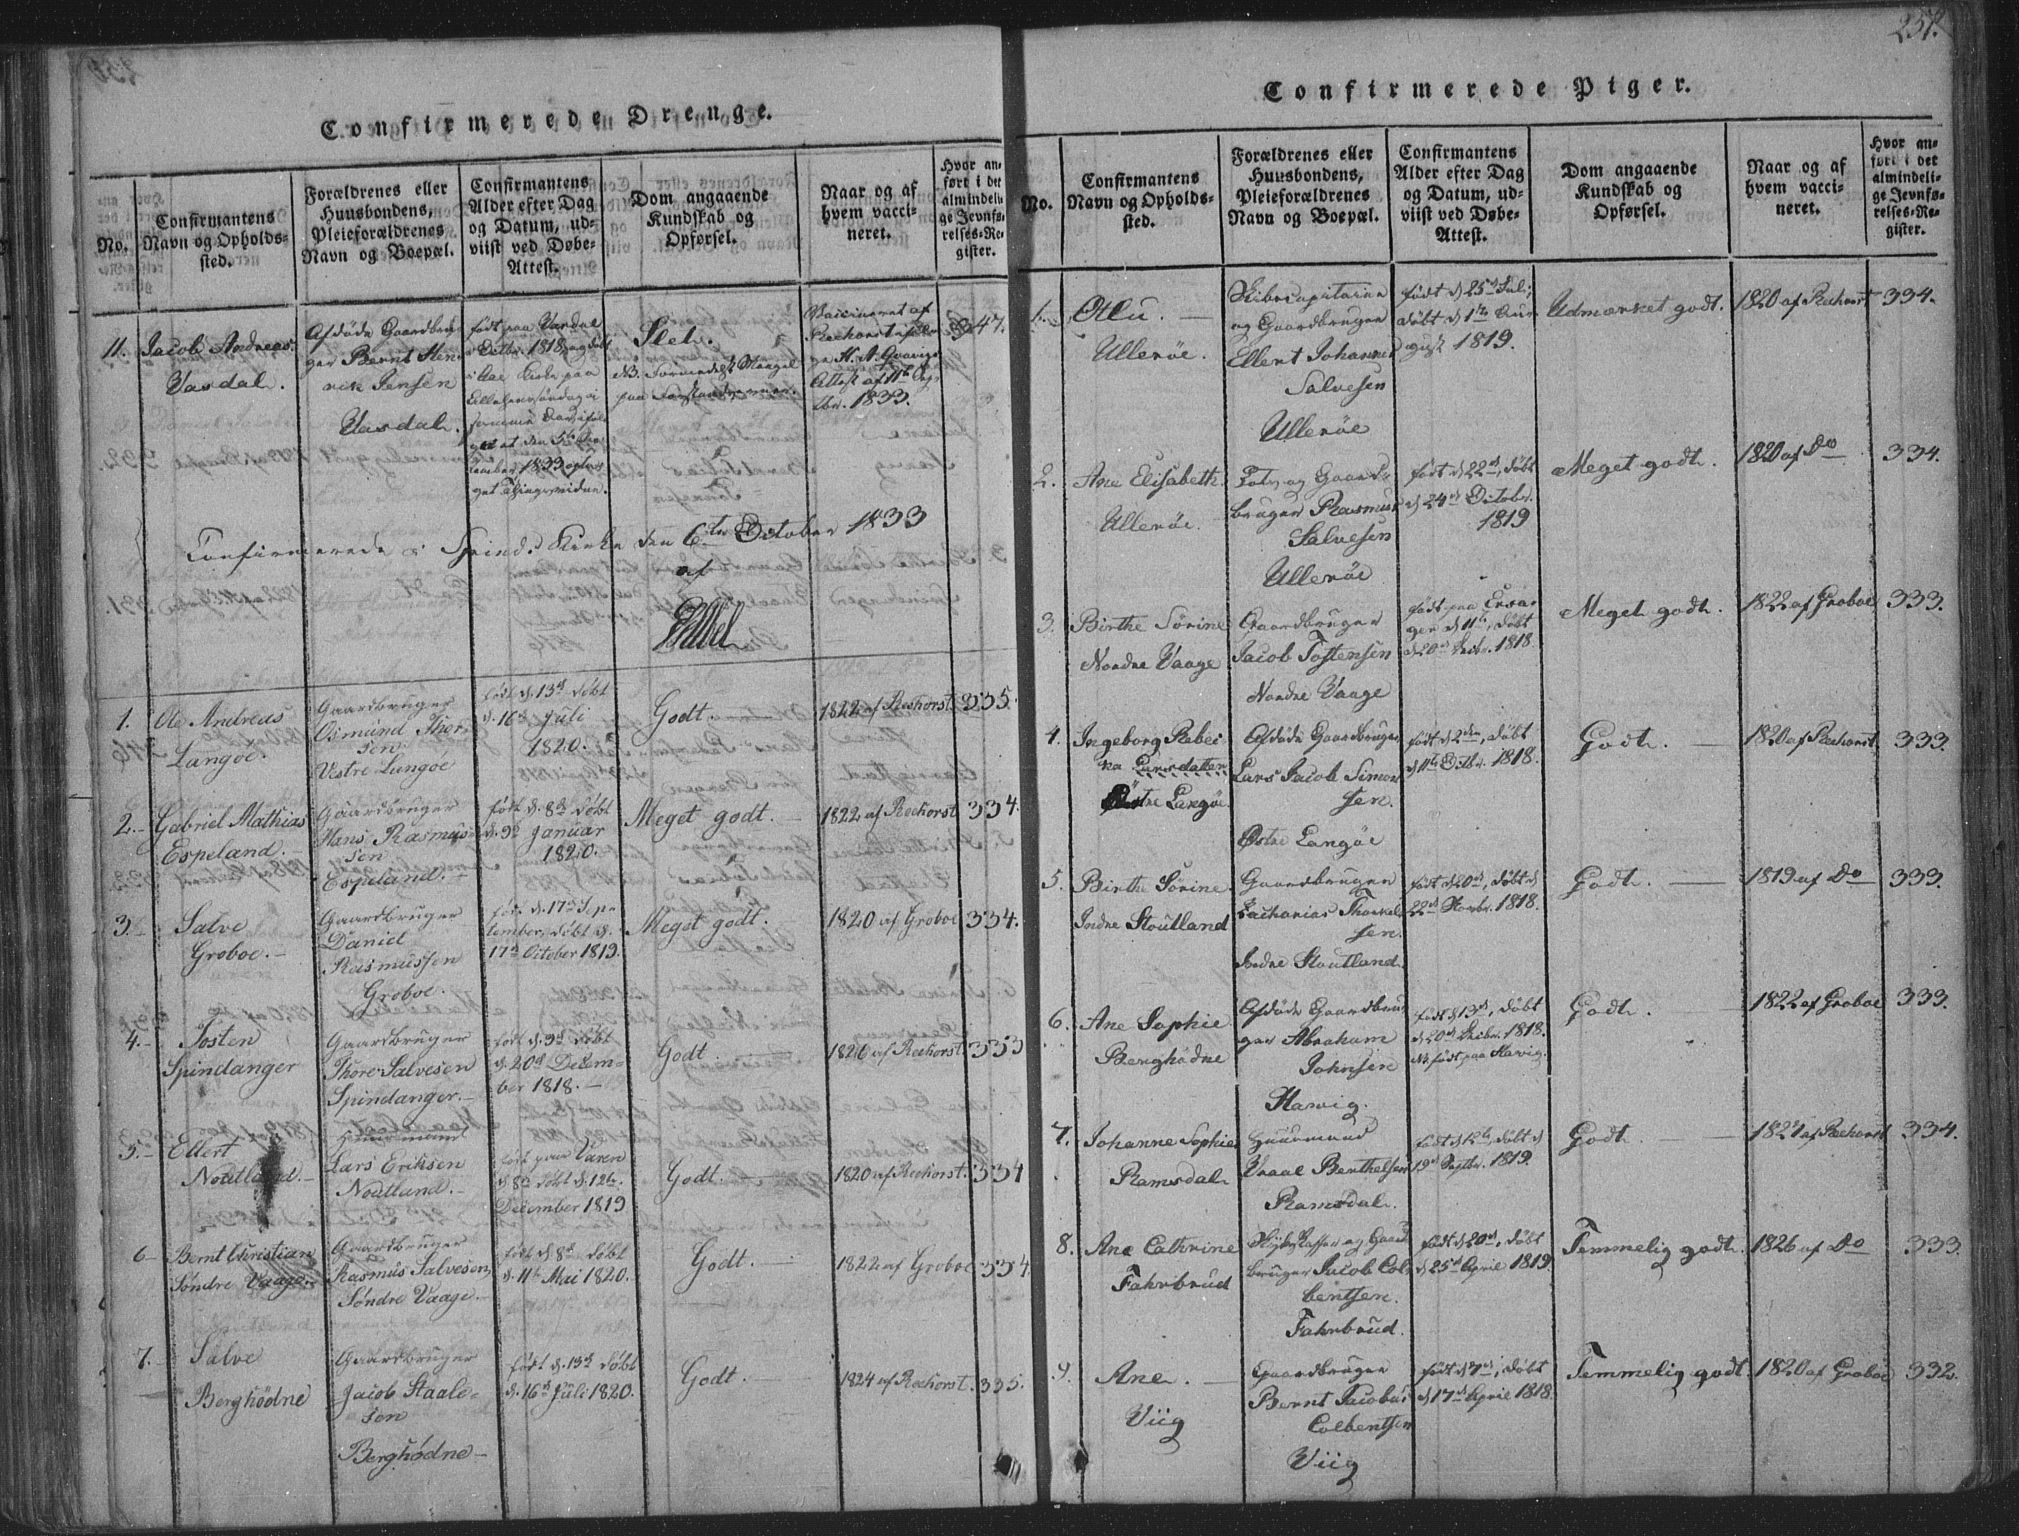 Confirmerede Drenge.
No.
Confirmantens
Navn og Opholds-
sted.
Forældrenes eller
Huusbondens,
Pleieforældrenes
Navn og Boepæl.
Confirmantens
Alder efter Dag
og Datum, ud-
viist ved Døbe-
Attest.
Dom angaaende
Kundskab og
Opførsel.
Naar og af
hvem vacci-
neret.
Hvor an-
ført i det
almindeli-
ge Jevnfø-
relses-Re-
gister.
11. Jacob Andreas
Vasdal.
Afdøde Gaardbru-
ger Bernt Hen-
rick Jensen
Vasdal.
født paa Vardal
1818
1833
Slet.
paa
Vaccineret af
Rechorst
Attest af 11te
1833.
347.
Confirmerede i Spinds Kirke den 6te October 1833
af
1. Ole Andreas
Langøe.
Gaardbruger
Osmund Thor-
sen
Vestre Langøe
født d. 13d døbt
d. 16d Juli
1820.
Godt.
1822 af Rechorst
335.
2. Gabriel Mathias
Espeland.
Gaardbruger
Hans Rasmus-
sen
Espeland.
født d. 8d døbt
d. 9d Januar
1820.
Meget godt.
1822 af Rechorst
334.
3. Salve
Groboe.
Gaardbruger
Daniel
Rasmussen
Groboe.
født d. 17d Sep-
tember, døbt d.
17d October 1819.
Meget godt.
1820 af Groboe
334.
4. Tosten
Spindanger
Gaardbruger
Thore Salvesen
Spindanger.
født d. 9d døbt
d. 20d Decem-
ber 1818.
Godt.
1820 af Rechorst.
333
5. Ellert
Nodtland.
Huusmand
Lars Eriksen
Nodtland.
født paa Varen
d. 8d døbt d. 12te
December 1819
Godt.
1820 af Rechorst.
334
6 Bernt Christian
Søndre Vaage.
Gaardbruger
Rasmus Salvesen
Søndre Vaage.
født d. 8d døbt
d. 11te Mai 1820.
Godt.
1822 af Groboe
334.
7. Salve
Berghødne
Gaardbruger
Jacob Staale-
sen
Berghødne
født d. 13d døbt
d. 16d Juli 1820.
Godt.
1824 af Rechorst.
335.
251.
Confirmerede Piger.
No.
Confirmantens
Navn og Opholds-
sted.
Forældrenes eller
Huusbondens,
Pleieforældrenes
Navn og Boepæl.
Confirmantens
Alder efter Dag
og Datum, ud-
viist ved Døbe-
Attest.
Dom angaaende
Kundskab og
Opførsel.
Naar og af
hvem vacci-
neret.
Hvor an-
ført i det
almindeli-
ge Jevnfø-
relses-Re-
gister.
1.
Ullerøe.
Skibscapitaine
og Gaardbruger
Ellert Johannes
Salvesen
Ullerøe
født d 25d Juli,
døbt d 1te Au-
gust 1819.
Udmærket godt.
1820 af Rechorst
334.
2. Ane Elisabeth
Ullerøe.
Lots og Gaard-
bruger Rasmus
Salvesen
Ullerøe
født d 22d, døbt
d 24d Octobr.
1819
Meget godt.
1820 af Do
334.
3. Birthe Sørine
Nordre Vaage
Gaardbruger
Jacob Tostensen
Nordre Vaage
født paa
d 11te, døbt
d 20d Decbr. 1818.
Meget godt.
1822 af Groboe
333.
4. Ingeborg Rebec-
ka Larsdatter
Østre Langøe
Afdøde Gaardbruger
Lars Jacob Simon-
sen.
Østre Langøe
født d 2den, døbt
d 11te Octbr. 1818.
Godt.
1820 af Rechorst
333.
5. Birthe Sørine
Indre Stoutland
Gaardbruger
Zacharias Thorkel-
sen.
Indre Stoutland.
født d 20d, døbt d
22d Novbr. 1818.
Godt.
1819 af Do
333.
6. Ane Sophie
Berghødne
Afdøde Gaardbru-
ger Abraham
Johnsen
Harvig.
født d 13d, døbt
d 20d Decbr. 1818.
NB født paa Harvig.
Godt.
1822 af Groboe
333.
7. Johanne Sophie
Ramsdal.
Huusmand
Vraal Berthelsen
Ramsdal.
født d 12te, døbt d
19d Septbr. 1819.
Godt.
1827 af Rechorst
334.
8. Ane Cathrine
Fahrbrud
og Gaard-
bruger Jacob Col-
bentsen.
Fahrbrud.
født d 20d, døbt
d 25d April 1819.
Temmelig godt.
1826 af Do
333.
9. Ane.
Viig
Gaardbruger
Bernt Jacobus
Colbentsen
Viig
født d 7d, døbt
d 17d April 1818.
Temmelig godt.
1820 af Groboe
332.